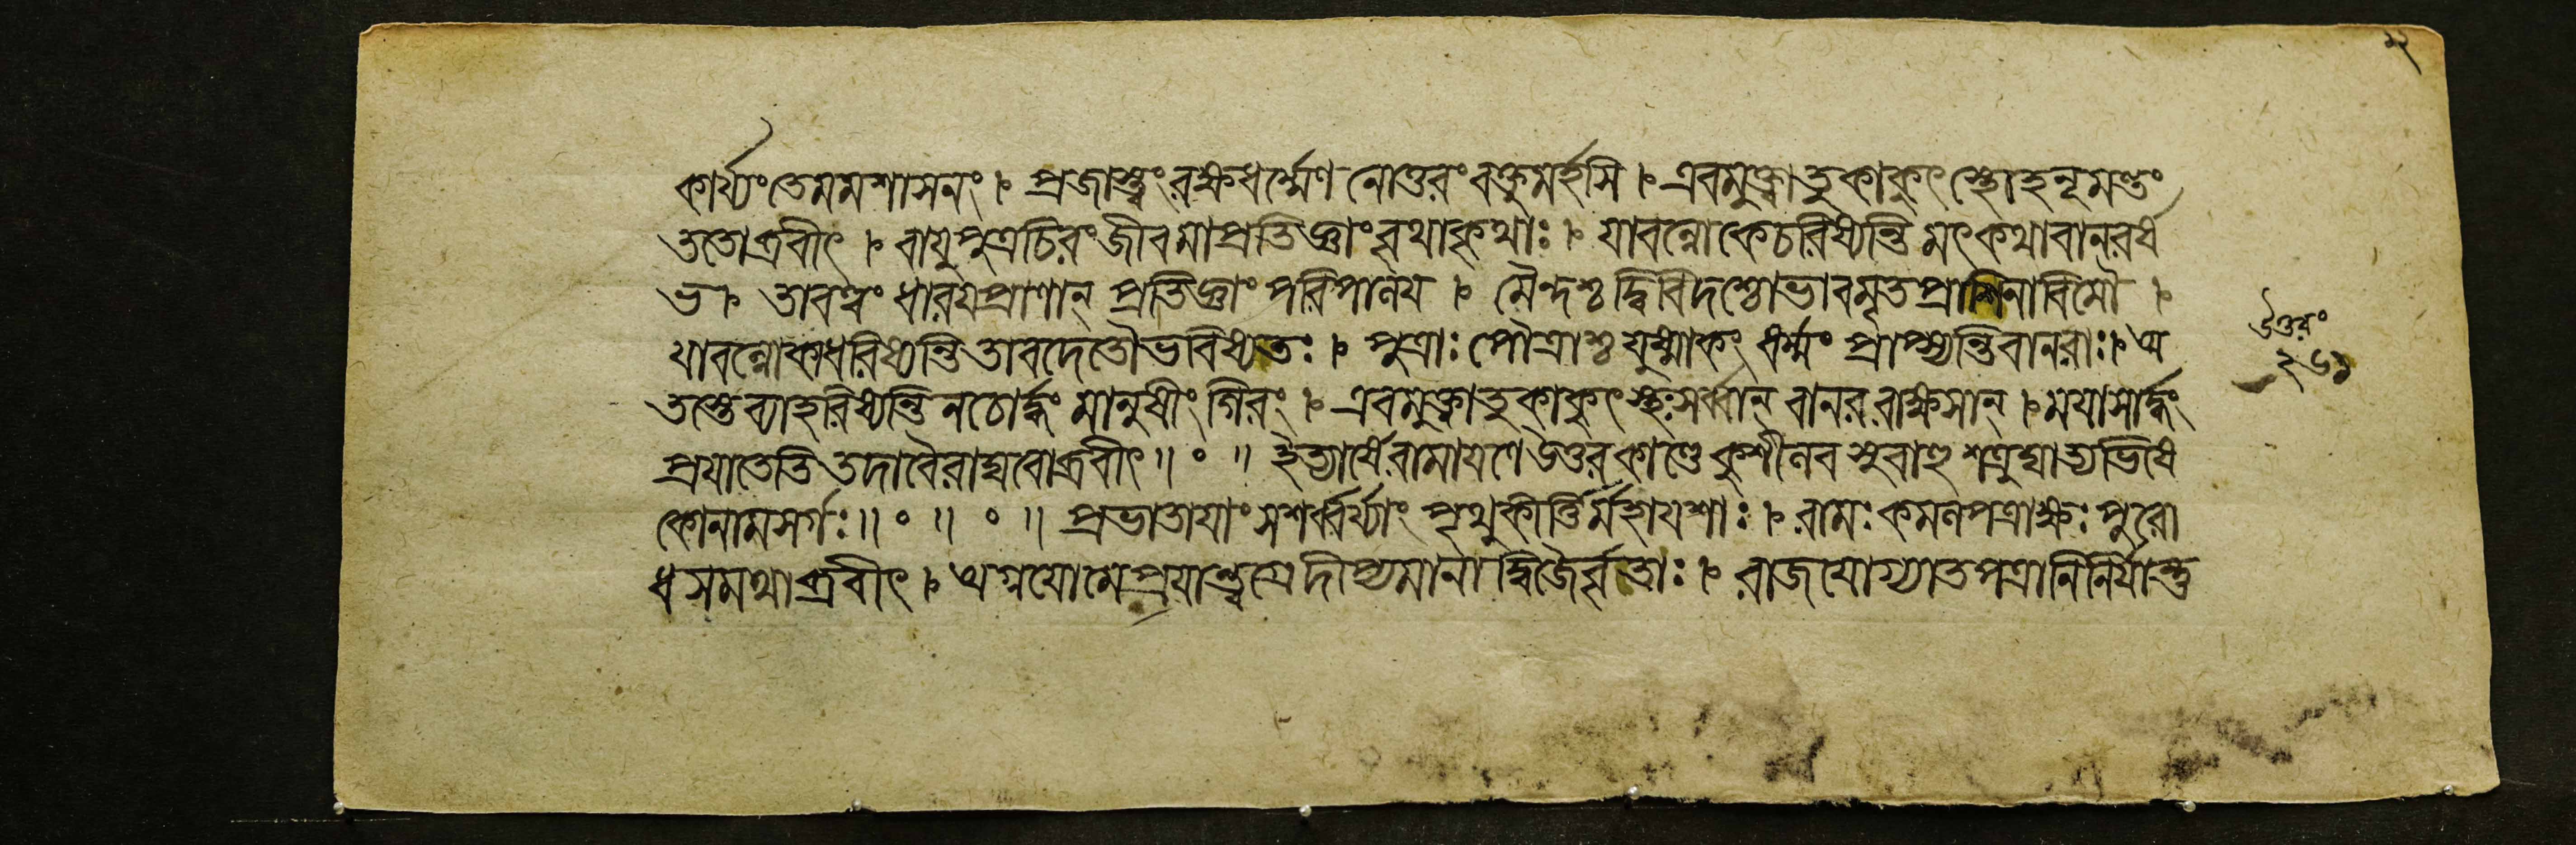 কার্য্যং তে মম শাসনং । প্রজাস্ত্বং রক্ষ ধর্ম্মেণ নোত্তরং বক্তুমর্হসি । এবমুক্ত্বা তু কাকুৎস্থো হনূমন্তং
ততোব্রবীৎ । বায়ুপুত্র চিরং জীব মা প্রতিজ্ঞাং বৃথা কৃথাঃ । যাবল্লোকে চরিষ্যন্তি মৎকথা বানরর্ষ
ভ । তাবত্ত্বং ধারয় প্রাণান্ প্রতিজ্ঞাং পরিপালয় । মৈন্দশ্চ দ্বিবিদশ্চোভাবমৃতপ্রাশিনাবিমৌ ।
যাবল্লোকা ধরিষ্যন্তি তাবদেতৌ ভবিষ্যতঃ । পুত্রাঃ পৌত্রাশ্চ যুষ্মাকং ধর্ম্মং প্রাপ্স্যন্তি বানরাঃ । অ
তস্তে ব্যাহরিষ্যন্তি নচোর্দ্ধং মানুষীং গিরং । এবমুক্ত্বা তু কাকুৎস্থঃ সর্ব্বান্ বানররাক্ষসান্ । ময়া সার্দ্ধং
প্রয়াতেতি তদা বৈ রাঘবোব্রবীৎ ॥ ० ॥ ইত্যার্ষে রামায়ণে উত্তরকাণ্ডে কুশীলব সুবাহু শত্রুঘাত্যভিষে
কো নাম সর্গঃ ॥ ० ॥ ० ॥ প্রভাতায়াং স শর্ব্বর্য্যাং পৃথুকীর্ত্তির্মহাযশাঃ । রামঃ কমলপত্রাক্ষঃ পুরো
ধসমথাব্রবীৎ । অগ্নয়ো মে প্রয়ান্ত্বগ্রে দীপ্যমানা দ্বিজৈর্বৃতাঃ । রাজযোগ্যাতপত্রানি নির্যান্তু
উত্তরং